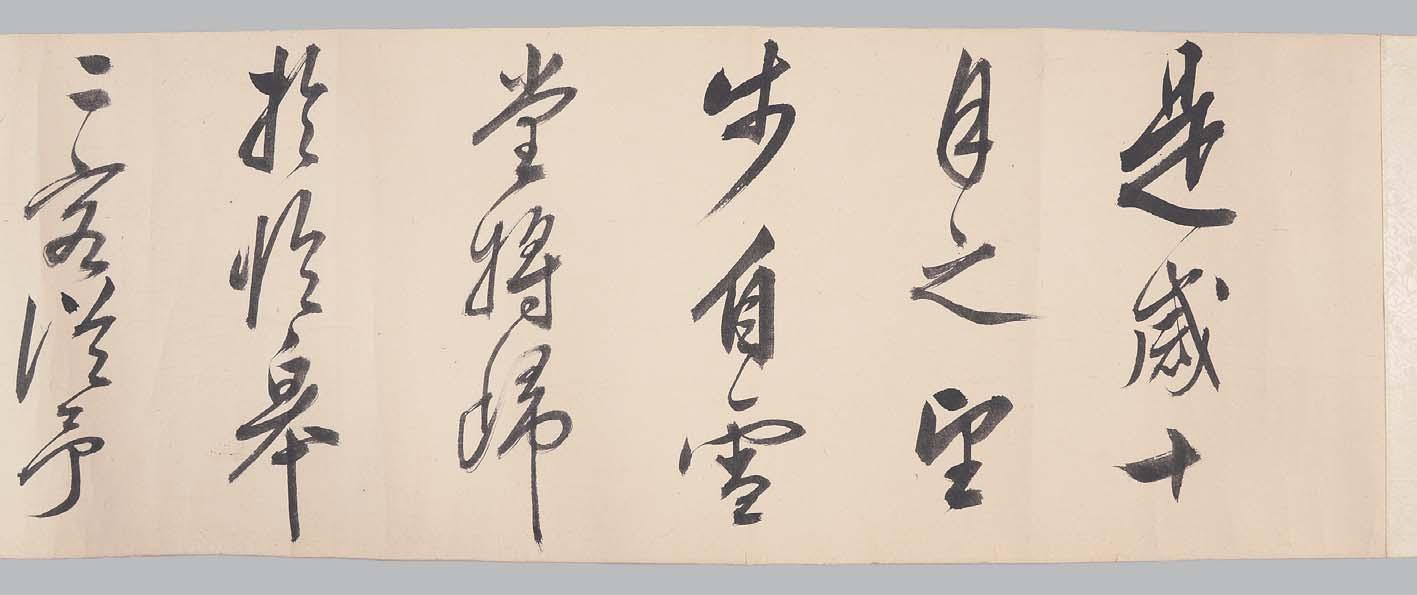 是歲十
月之望
步自雪
堂將歸
於臨皋
二客從予